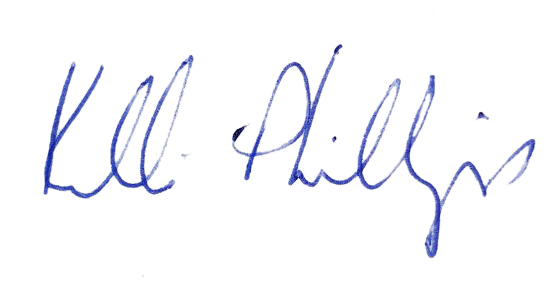 Kelli Phillips